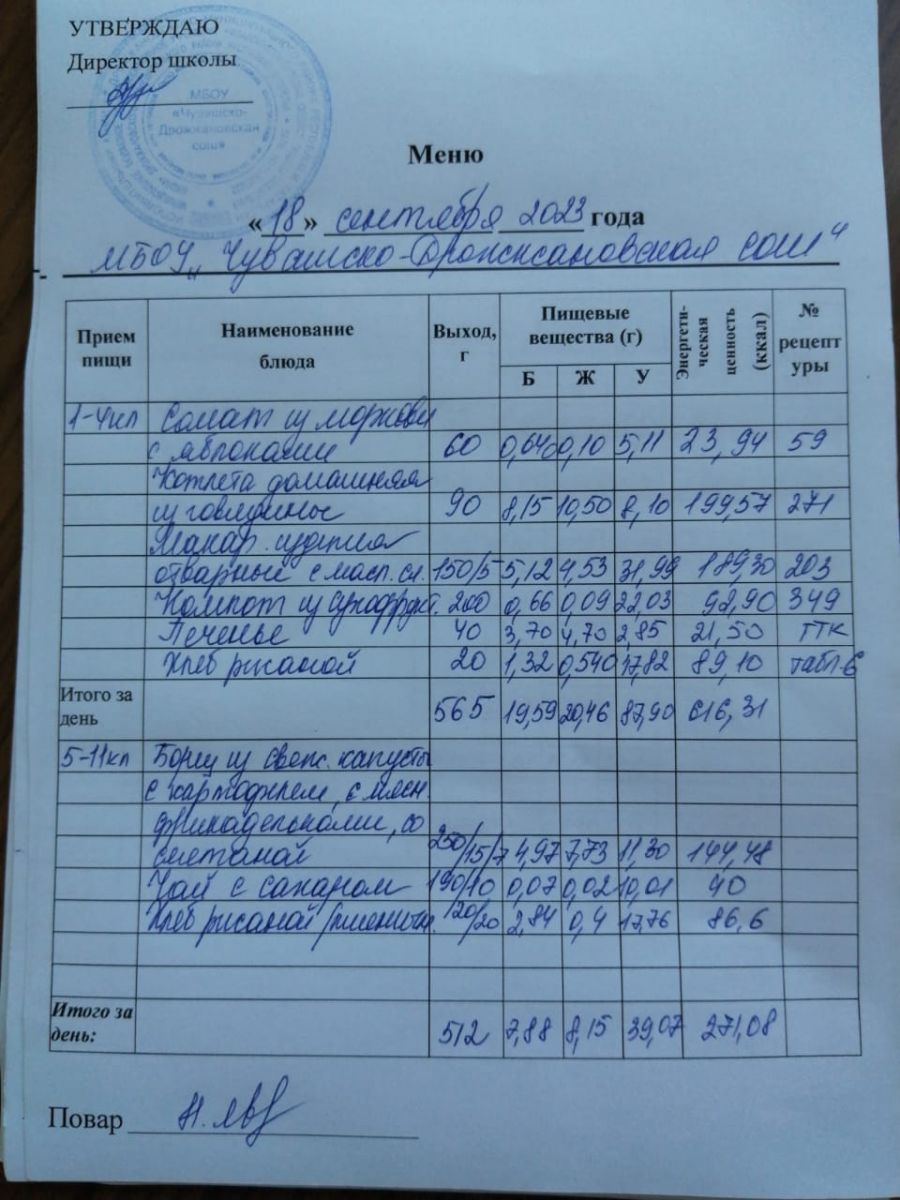 УТВЕРЖДАЮ
Директор школы
МБОУ
«Чувашско-
Дрожжановская
сош»
Меню
« 18 » сентября 2023 года
МБОУ „Чувашско-Дрожжановская сош"
Прием пищи Наименование блюда Выход, г Пищевые вещества (г) Энергети-ческая ценность (ккал) № рецепт уры
Б Ж У
1-4кл Салат из моркови
с яблоками 60 0,646 0,10 5,11 23,94 59
Котлета домашняя
из говядины 90 8,15 10,50 8,10 199,57 271
Макар. изделия
отварные с масл. сл. 150/5 5,12 4,53 31,99 189,30 203
Компот из сухофрукт. 200 0,66 0,09 22,03 92,90 349
Печенье 40 3,70 4,70 2,85 21,50 ТТК
Хлеб ржаной 20 1,32 0,540 17,82 89,10 табл-6
Итого за день 565 19,59 20,46 87,90 616,31
5-11кл Борщ из свеж. капусты
с картофелем, с мясн.
фрикадельками, со
сметаной 250/15/7 4,97 7,73 11,30 144,48
Чай с сахаром 190/10 0,07 0,02 10,01 40
Хлеб ржаной/пшеничн. 20/20 2,84 0,4 17,76 86,6
Итого за день: 512 7,88 8,15 39,07 271,08
Повар